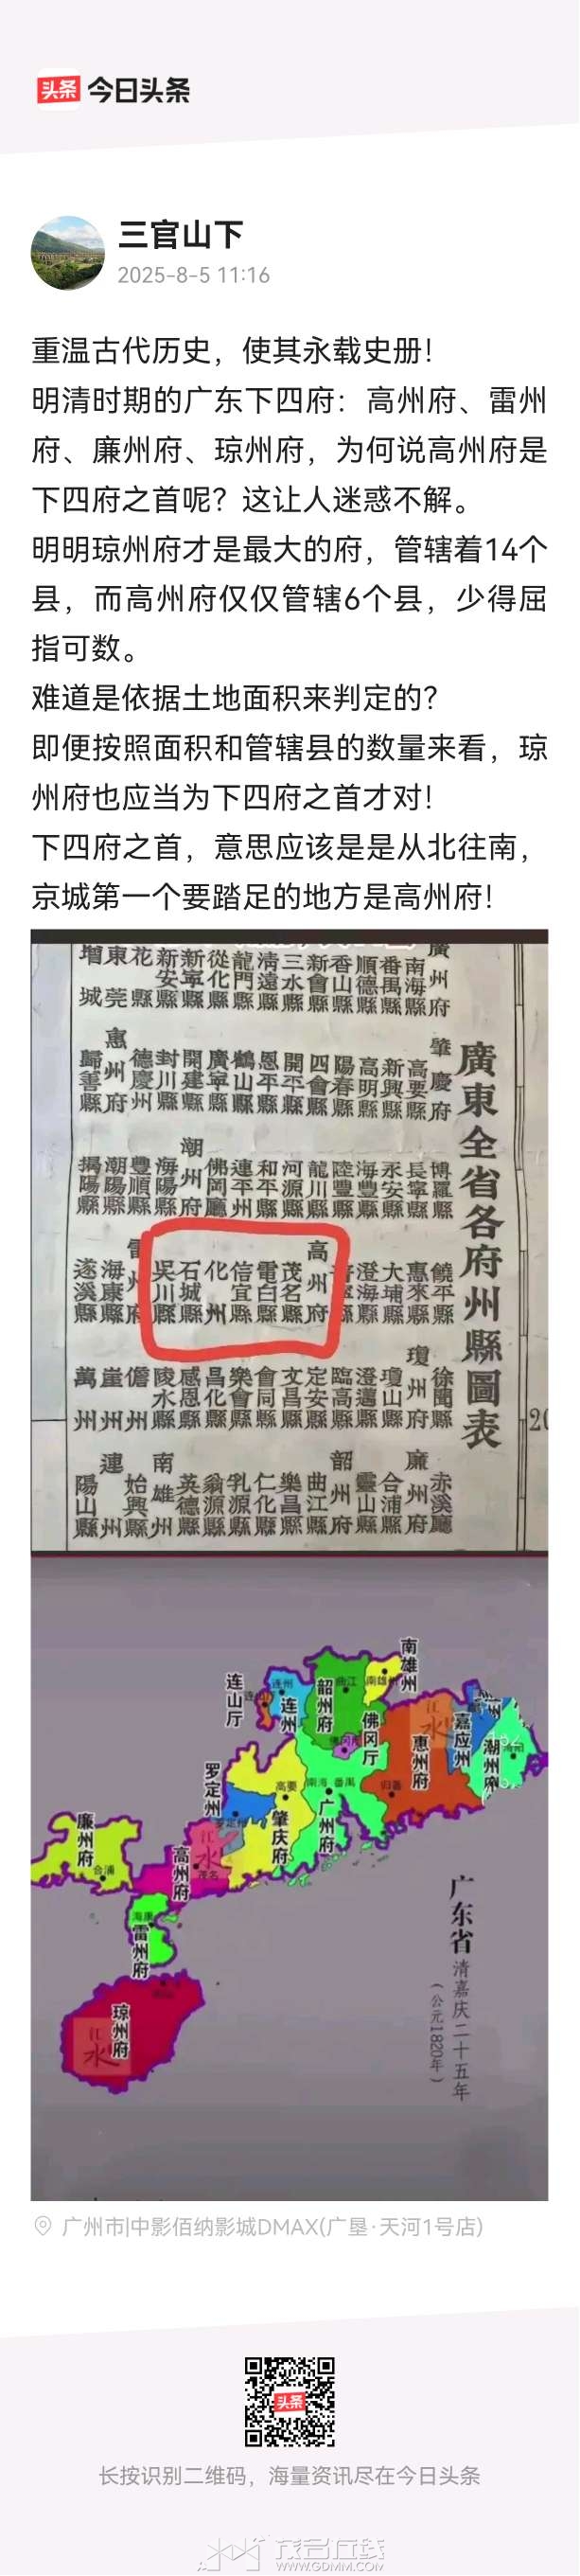 头条 今日头条
三官山下
2025-8-5 11:16
重温古代历史，使其永载史册！
明清时期的广东下四府：高州府、雷州
府、廉州府、琼州府，为何说高州府是
下四府之首呢？这让人迷惑不解。
明明琼州府才是最大的府，管辖着14个
县，而高州府仅仅管辖6个县，少得屈
指可数。
难道是依据土地面积来判定的？
即便按照面积和管辖县的数量来看，琼
州府也应当为下四府之首才对！
下四府之首，意思应该是是从北往南，
京城第一个要踏足的地方是高州府！
廣東全省各府州縣圖表
廣州府 南海縣 番禺縣 順德縣 香山縣 新會縣 三水縣 清遠縣 龍門縣 從化縣 新寧縣 新安縣 花縣 東莞 增城
肇慶府 高要縣 新興縣 高明縣 陽春縣 四會縣 開平縣 恩平縣 鶴山縣 廣寧縣 開建縣 封川縣 德慶州 惠州府 歸善縣
博羅縣 長寧縣 永安縣 海豐縣 陸豐縣 龍川縣 河源縣 和平縣 連平州 佛岡廳 潮州府 海陽縣 豐順縣 潮陽縣 揭陽縣
饒平縣 惠來縣 大埔縣 澄海縣 高州府 茂名縣 電白縣 信宜縣 化州 石城縣 吳川縣 海康縣 遂溪縣
徐聞縣 瓊州府 瓊山縣 澄邁縣 臨高縣 定安縣 文昌縣 會同縣 樂會縣 昌化縣 感恩縣 陵水縣 儋州 崖州 萬州
赤溪廳 廉州府 合浦縣 靈山縣 韶州府 曲江縣 樂昌縣 仁化縣 乳源縣 翁源縣 英德縣 南雄州 始興縣 連州 陽山縣
20
南雄州
连山厅
连州
连州
韶州府
曲江
佛冈厅
惠州府
归善
嘉应州
潮州府
罗定州
高要
肇庆府
南海
番禺
广州府
廉州府
合浦
高州府
茂名
海康
雷州府
琼州府
江水
江水
江水
广东省
清嘉庆二十五年
（公元1820年）
广州市|中影佰纳影城DMAX(广垦·天河1号店)
头条
长按识别二维码，海量资讯尽在今日头条
茂名在线
WWW.GDMM.COM